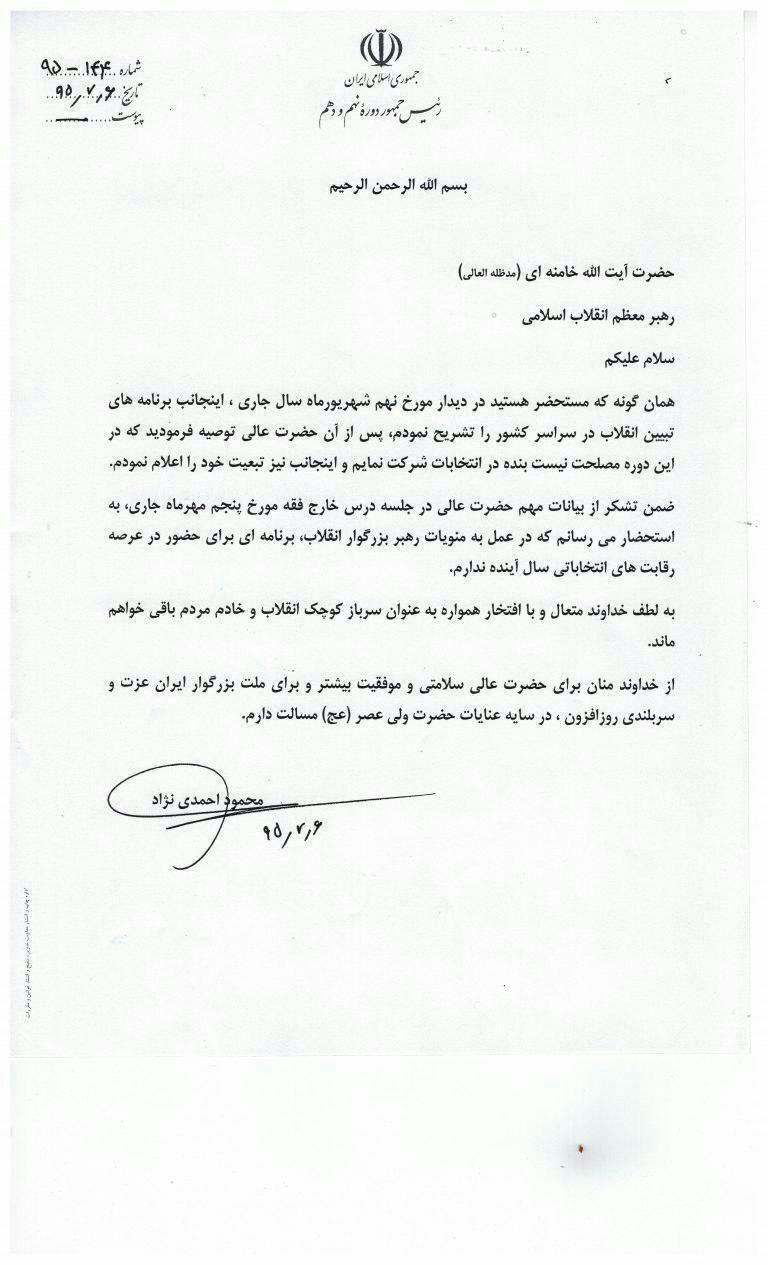 جمهوری اسلامی ایران
رئیس جمهور دورهٔ نهم و دهم
شماره ۱۴۴ - ۹۵
تاریخ ۹۵,۷,۶
پیوست
بسم الله الرحمن الرحیم
حضرت آیت الله خامنه ای (مدظله العالی)
رهبر معظم انقلاب اسلامی
سلام علیکم
همان گونه که مستحضر هستید در دیدار مورخ نهم شهریورماه سال جاری ، اینجانب برنامه های
تبیین انقلاب در سراسر کشور را تشریح نمودم، پس از آن حضرت عالی توصیه فرمودید که در
این دوره مصلحت نیست بنده در انتخابات شرکت نمایم و اینجانب نیز تبعیت خود را اعلام نمودم.
ضمن تشکر از بیانات مهم حضرت عالی در جلسه درس خارج فقه مورخ پنجم مهرماه جاری، به
استحضار می رسانم که در عمل به منویات رهبر بزرگوار انقلاب، برنامه ای برای حضور در عرصه
رقابت های انتخاباتی سال آینده ندارم.
به لطف خداوند متعال و با افتخار همواره به عنوان سرباز کوچک انقلاب و خادم مردم باقی خواهم
ماند.
از خداوند منان برای حضرت عالی سلامتی و موفقیت بیشتر و برای ملت بزرگوار ایران عزت و
سربلندی روزافزون ، در سایه عنایات حضرت ولی عصر (عج) مسالت دارم.
محمود احمدی نژاد
۹۵,۷,۶